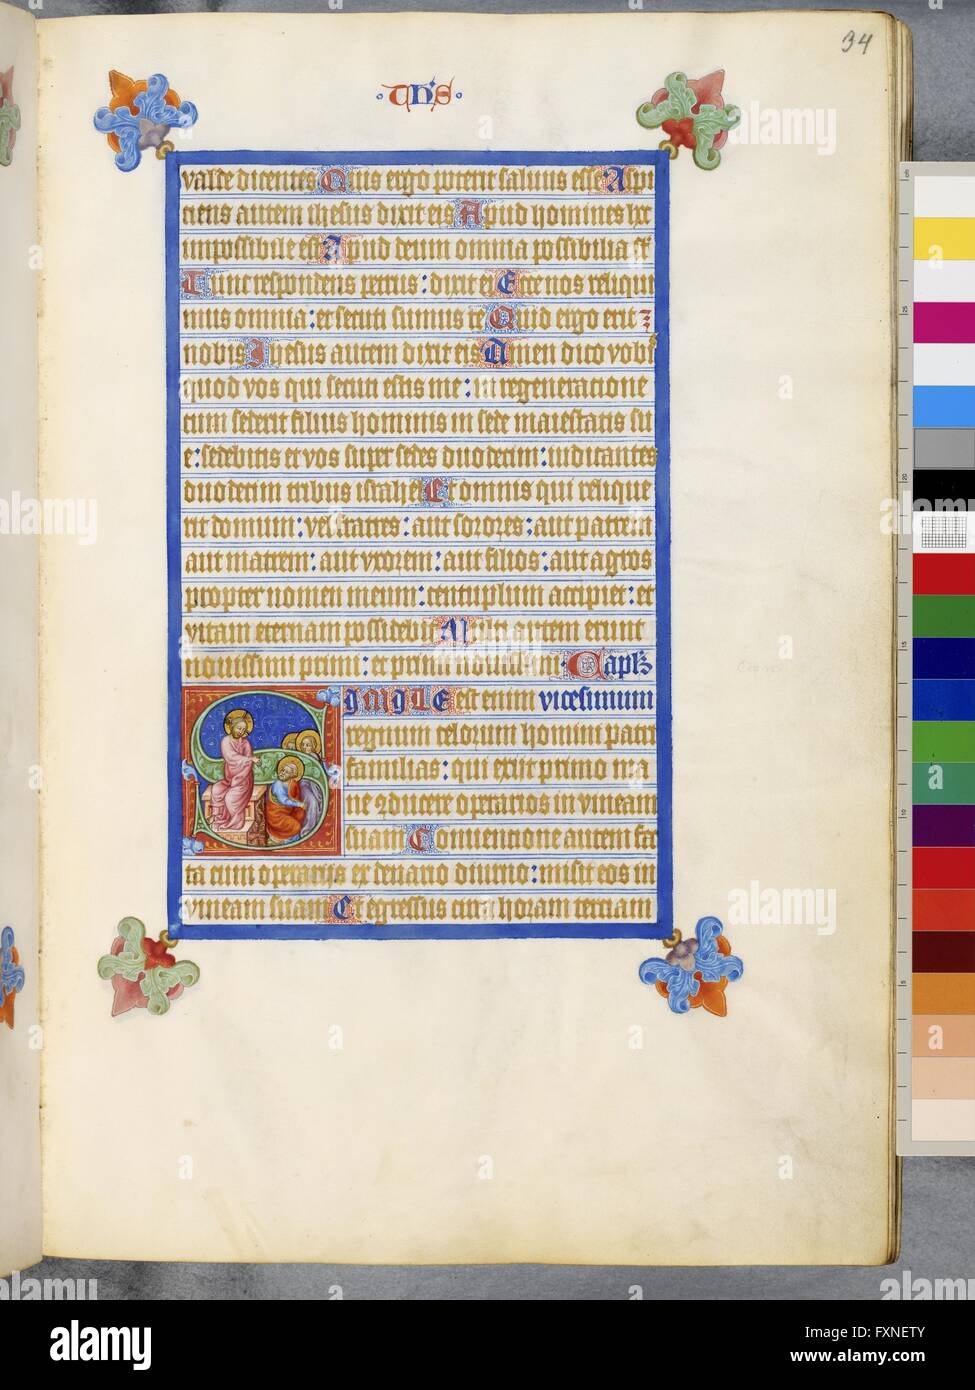 34
·THS·
valde dicentes Quis ergo poterit saluus esse Aspi
ciens autem ihesus dixit eis Apud homines hoc
impossibile est Apud deum omnia possibilia st
Tunc respondens petrus : dixit ei Ecce nos reliqui
mus omnia : et secuti sumus te Quid ergo erit
nobis Ihesus autem dixit eis Amen dico vobis
quod vos qui secuti estis me : in regeneracione
cum sederit filius hominis in sede maiestatis su
e : sedebitis et vos super sedes duodecim : iudicantes
duodecim tribus israhel Et omnis qui relique
rit domum : vel fratres : aut sorores : aut patrem
aut matrem : aut vxorem : aut filios : aut agros
propter nomen meum : centuplum accipiet : et
vitam eternam possidebit Multi autem erunt
nouissimi primi : et primi nouissimi · Caplm
SIMILE est enim vicesimum
regnum celorum homini patri
familias : qui exijt primo ma
ne 2ducere operarios in vineam
suam Conuencione autem fac
ta cum operarijs ex denario diurno : misit eos in
vineam suam Et egressus circa horam terciam
alamy
alamy
Image ID: FXNETY
www.alamy.com